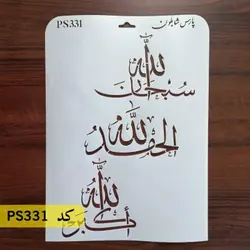 PS331 پارس شابلون
سبحان الله
الحمد لله
الله أكبر
کد PS331